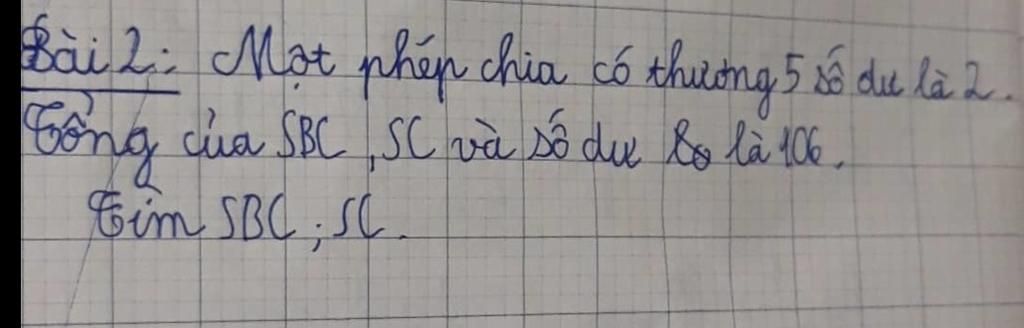 Bài 2: Một phép chia có thương 5 số dư là 2.
Tổng của SBC, SC và số dư là 106.
Tìm SBC; SC.